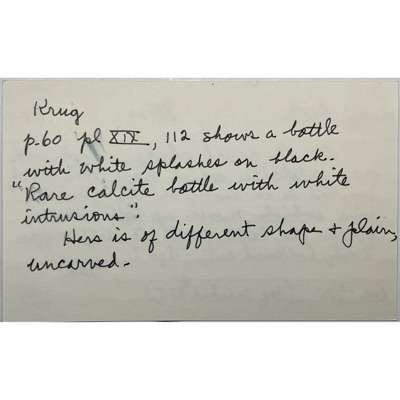 Krug
p.60 pl XIX, 112 shows a bottle
with white splashes on black.
"Rare calcite bottle with white
intrusions".
Hers is of different shape + plain,
uncarved.